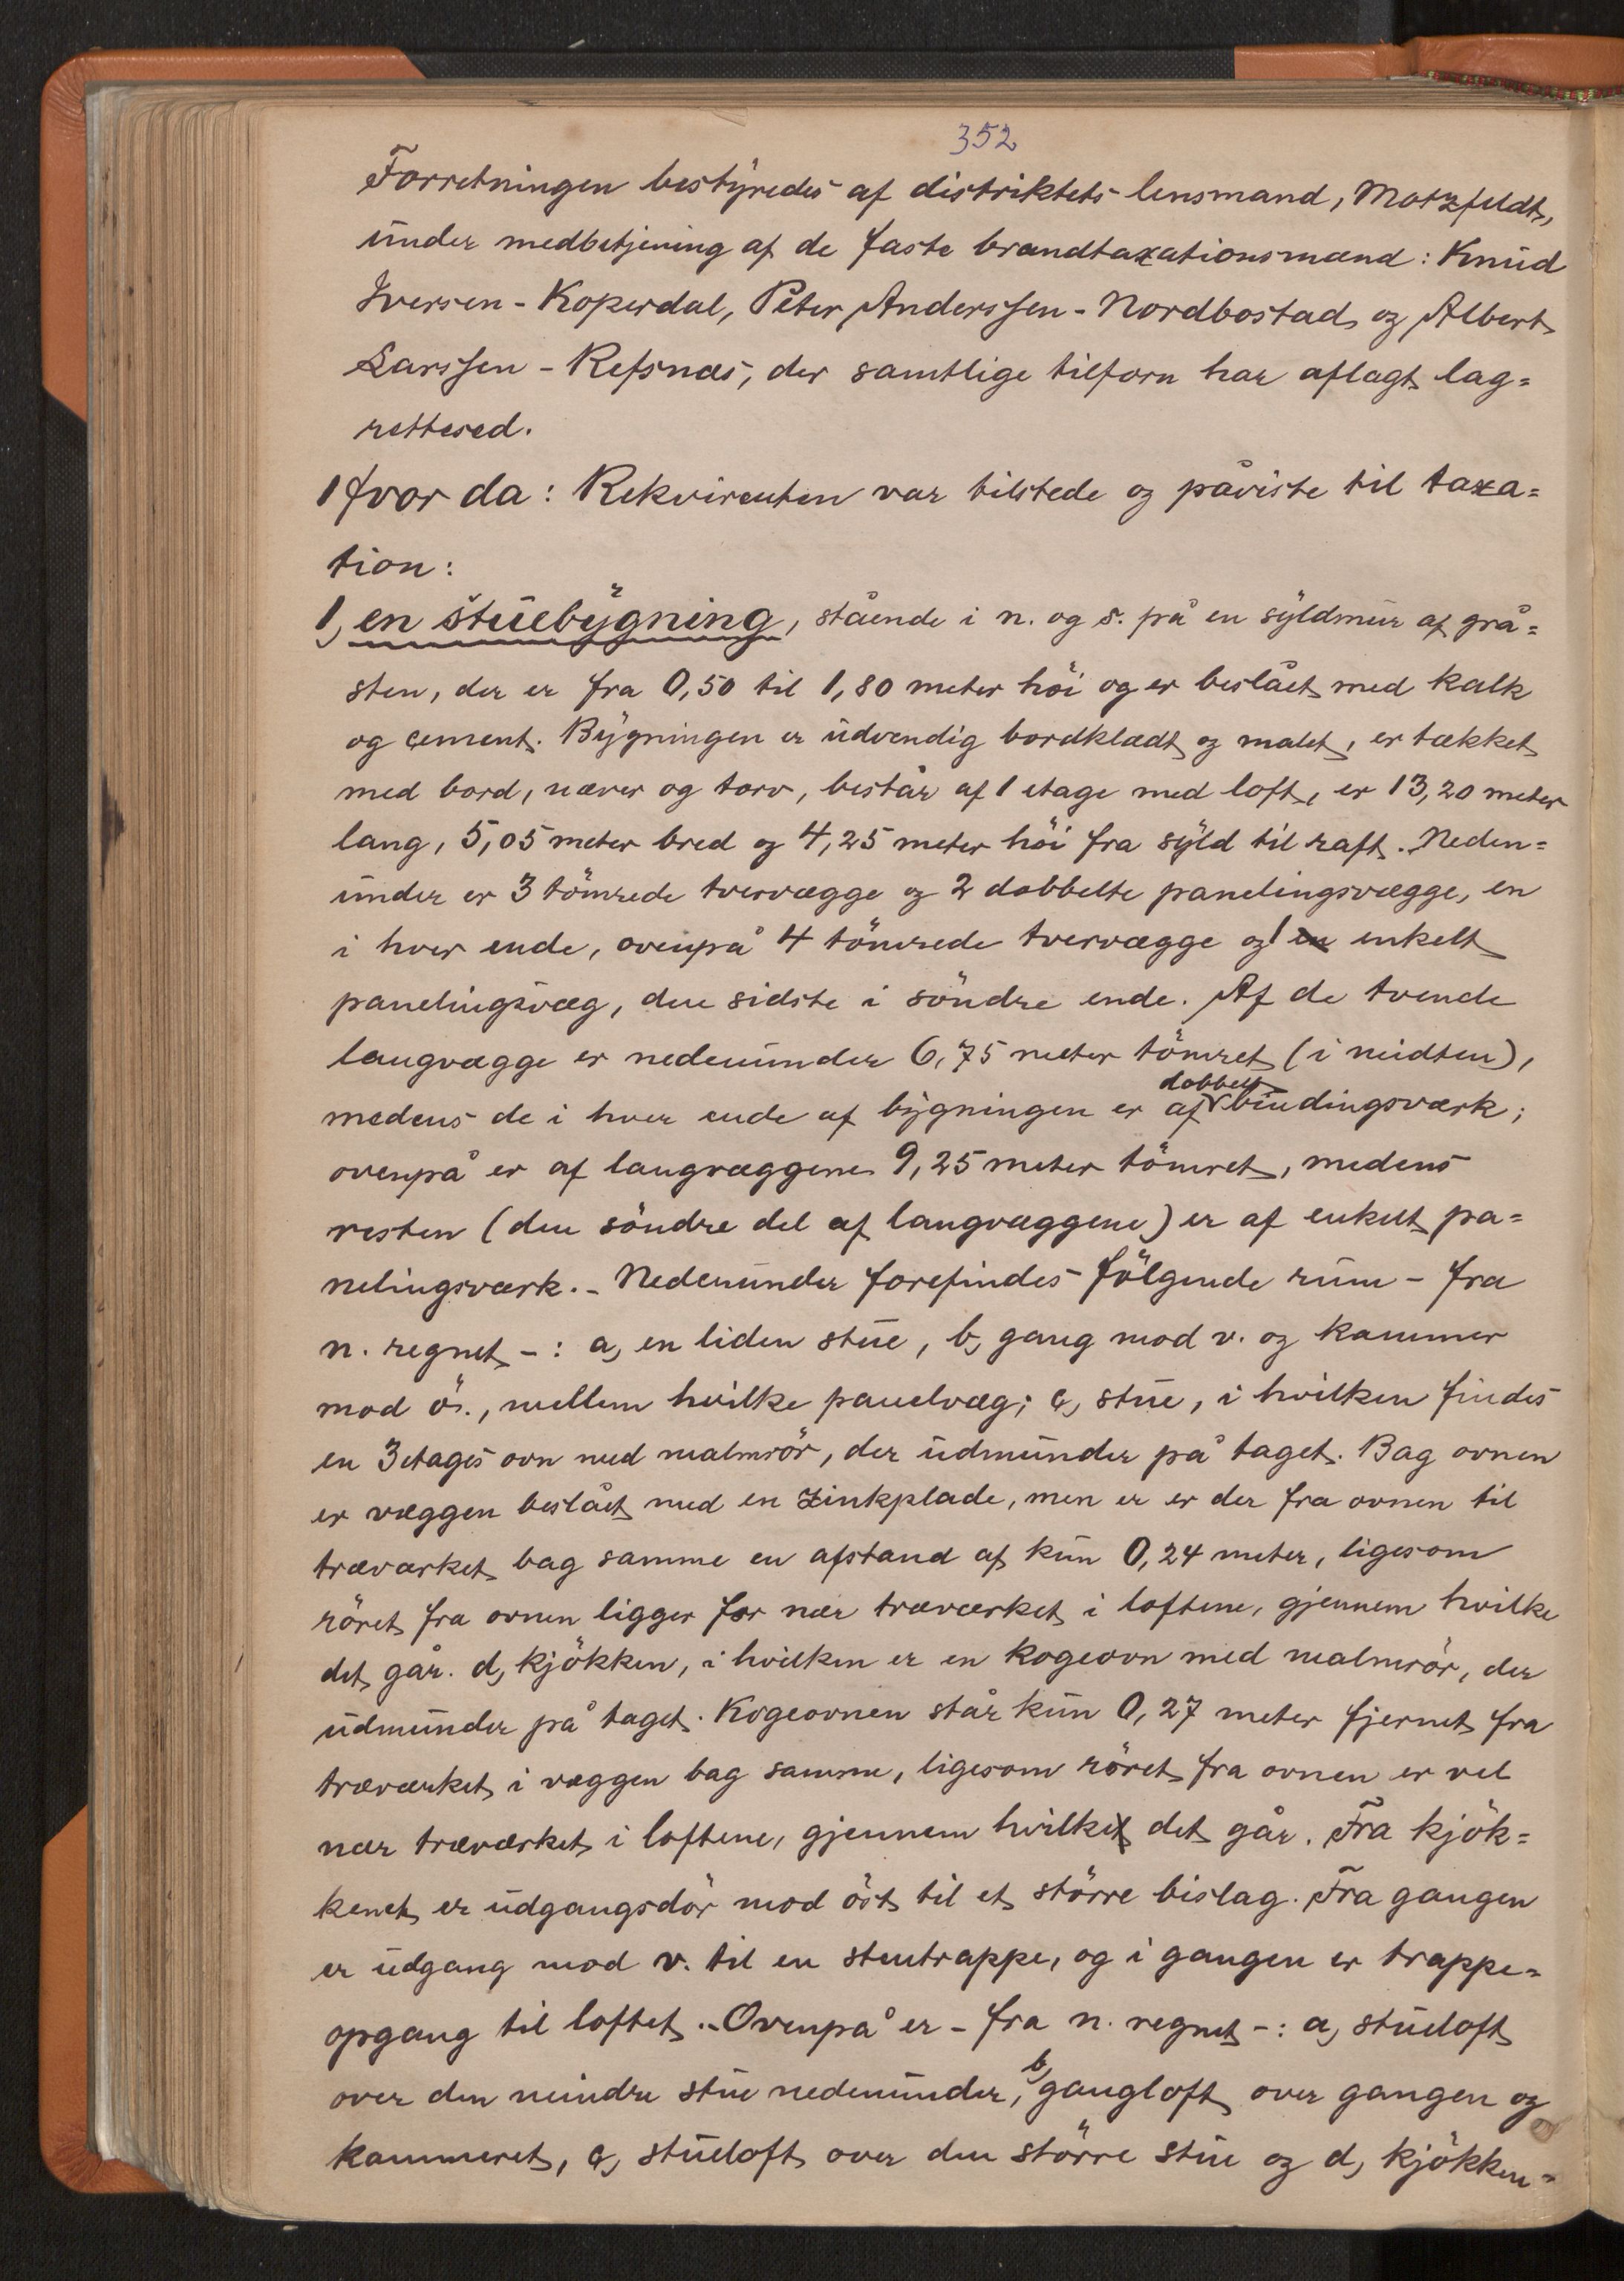 352
Forretningen bestyredes af distriktets lensmand, Motzfeldt,
under medbetjening af de faste brandtaxationsmænd: Knud
Iversen-Koperdal, Peter Anderssen-Nordbostad og Albert
Larssen-Refsnæs, der samtlige tilforn har aflagt lag=
rettesed.
Hvor da: Rekvirenten var tilstede og påviste til taxa=
tion:
1, en stuebygning, stående i n. og s. på en syldmur af grå=
sten, der er fra 0,50 til 1,80 meter höi og er beslået med kalk
og cement. Bygningen er udvendig bordklædt og malet, er tækket
med bord, næver og torv, består af 1 etage med loft, er 13,20 meter
lang, 5,05 meter bred og 4,25 meter höi fra syld til raft. Neden=
under er 3 tömrede tvervægge og 2 dobbelte panelingsvægge, en
i hver ende, ovenpå 4 tömrede tvervægge og 1 en enkelt
panelingsvæg, den sidste i söndre ende. Af de tvende
langvægge er nedenunder 6,75 meter tömret (i midten),
medens de i hver ende af bygningen er af dobbelt bindingsværk;
ovenpå er af langvæggene 9,25 meter tömret, medens
resten (den söndre del af langvæggene) er af enkelt pa=
nelingsværk. - Nedenunder forefindes fölgende rum - fra
n. regnet -: a, en liden stue, b, gang mod v. og kammer
mod ö., mellem hvilke panelvæg; c, stue, i hvilken findes
en 3 etages ovn med malmrör, der udmunder på taget. Bag ovnen
er væggen beslået med en zinkplade, men er er der fra ovnen til
træværket bag samme en afstand af kun 0,24 meter, ligesom
röret fra ovnen ligger for nær træværket i loftene, gjennem hvilke
det går. d, kjökken, i hvilken er en kogeovn med malmrör, der
udmunder på taget. Kogeovnen står kun 0,27 meter fjernet fra
træværket i væggen bag samme, ligesom röret fra ovnen er vel
nær træværket i loftene, gjennem hvilket det går. Fra kjök=
kenet er udgangsdör mod öst til et större bislag. Fra gangen
er udgang mod v. til en stentrappe, og i gangen er trappe=
opgang til loftet. - Ovenpå er - fra n. regnet -: a, stueloft
over den mindre stue nedenunder, b, gangloft over gangen og
kammeret, c, stueloft over den större stue og d, kjökken=